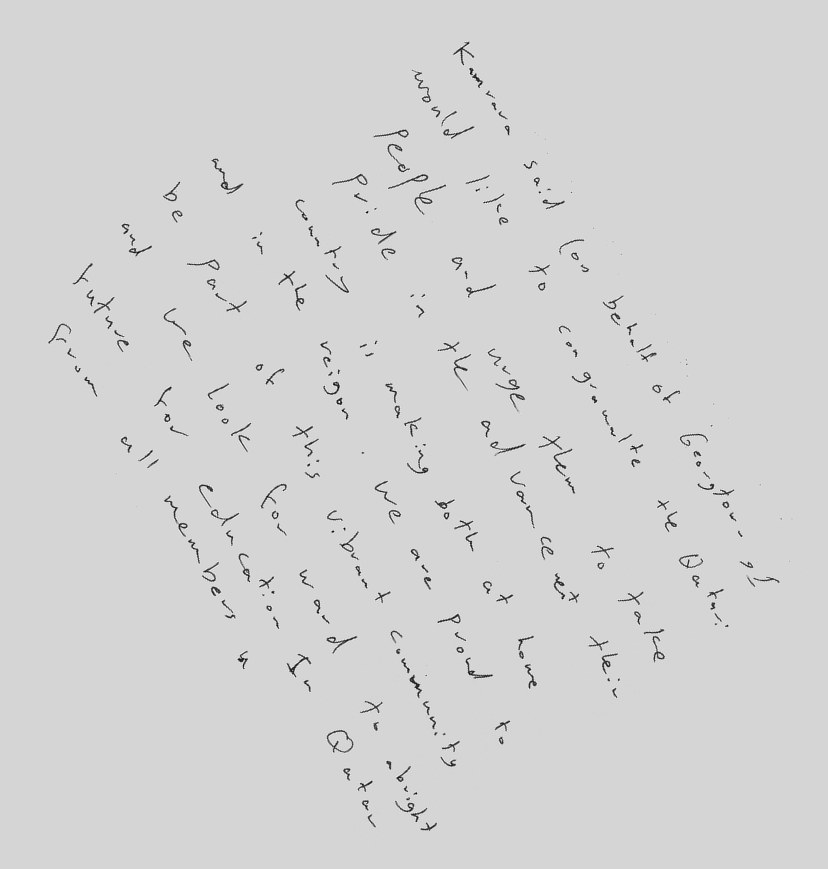 Kamrava said "on behalf of Georgtown, I
would like to congramalte the Qatari
people and urge them to take
pride in the advancement their
country is making both at home
and in the reigon. We are proud to
be part of this vibrant community
and we look forward to a bright
future for education In Qatar
from all members"